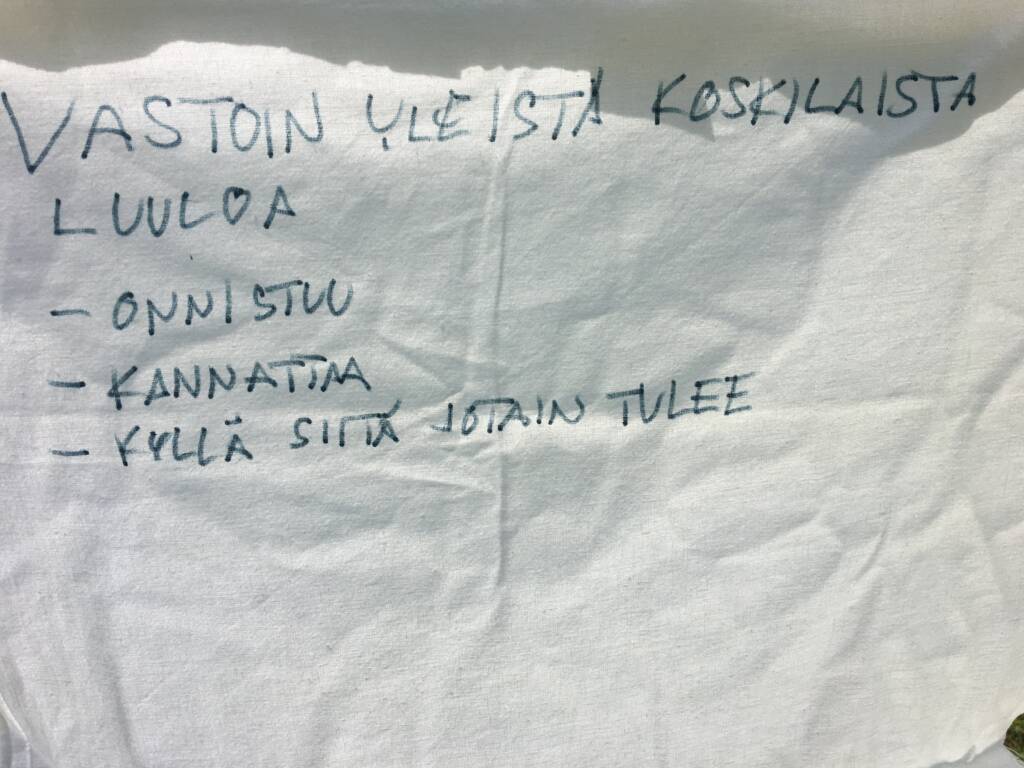 VASTOIN YLEISTÄ KOSKILAISTA
LUULOA
- ONNISTUU
- KANNATTAA
- KYLLÄ SIITÄ JOTAIN TULEE